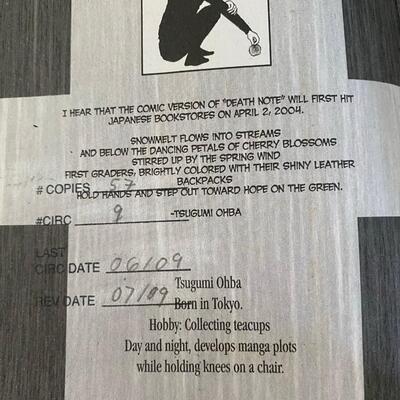 I HEAR THAT THE COMIC VERSION OF "DEATH NOTE" WILL FIRST HIT
JAPANESE BOOKSTORES ON APRIL 2, 2004.
SNOWMELT FLOWS INTO STREAMS
AND BELOW THE DANCING PETALS OF CHERRY BLOSSOMS
STIRRED UP BY THE SPRING WIND
FIRST GRADERS, BRIGHTLY COLORED WITH THEIR SHINY LEATHER
BACKPACKS
# COPIES 57
HOLD HANDS AND STEP OUT TOWARD HOPE ON THE GREEN.
#CIRC 9
-TSUGUMI OHBA
LAST
CIRC DATE 06/09
Tsugumi Ohba
REV DATE 07/09
Born in Tokyo.
Hobby: Collecting teacups
Day and night, develops manga plots
while holding knees on a chair.